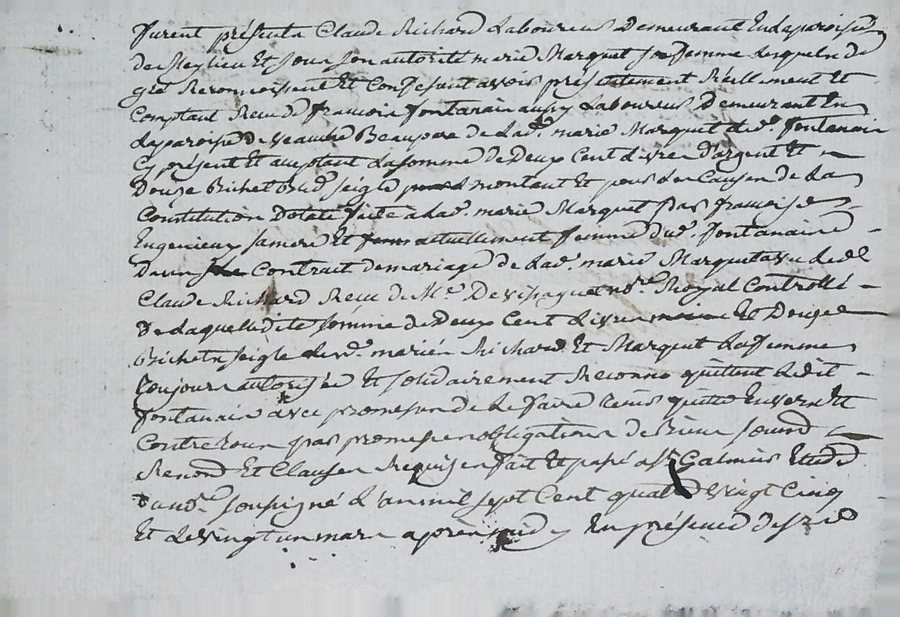 furent présents Claude Richard Laboureur Demeurant En La paroisse
de Et sous son autorité marie Marquet sa femme Lesquels de
gré Reconnoissent Et Confessent avoir présentement Reellement Et
Comptant Receu de françois fontanais aussy Laboureur Demeurant En
La paroisse de Veauche Beaupere de Lad.e marie Marquet Led.t fontanais
Cy présent Et aceptant La somme de Deux Cent Livres D'argent Et
Douze Bichets Bled seigle montant Et pour Les Causes de La
Constitution Dotale faite a Lad.e marie Marquet par françoise
Engenieux sa mere Et actuellement femme dud.t fontanaire
Dans Contrait de mariage de Lad.e marie Marquet avec Led.t
Claude Richard Receu de M.e no.re Royal Controllé
De Laquelle dite somme de Deux Cent Livres Et Douze
Bichets seigle Lesd.s mariés Richard Et Marquet La femme
toujours autorisée Et solidairement Reconne quittent Ledit
fontanais avec promesse de Le faire tenir quitte Envers Et
Contre tous par promesse obligation de Biens soumd
Renond Et Clauses Requises fait Et passé a S.t Galmier Etude
du no.re soussigné L'an mil sept Cent quatre Vingt Cinq
Et Le vingt un mars après midy En présence de